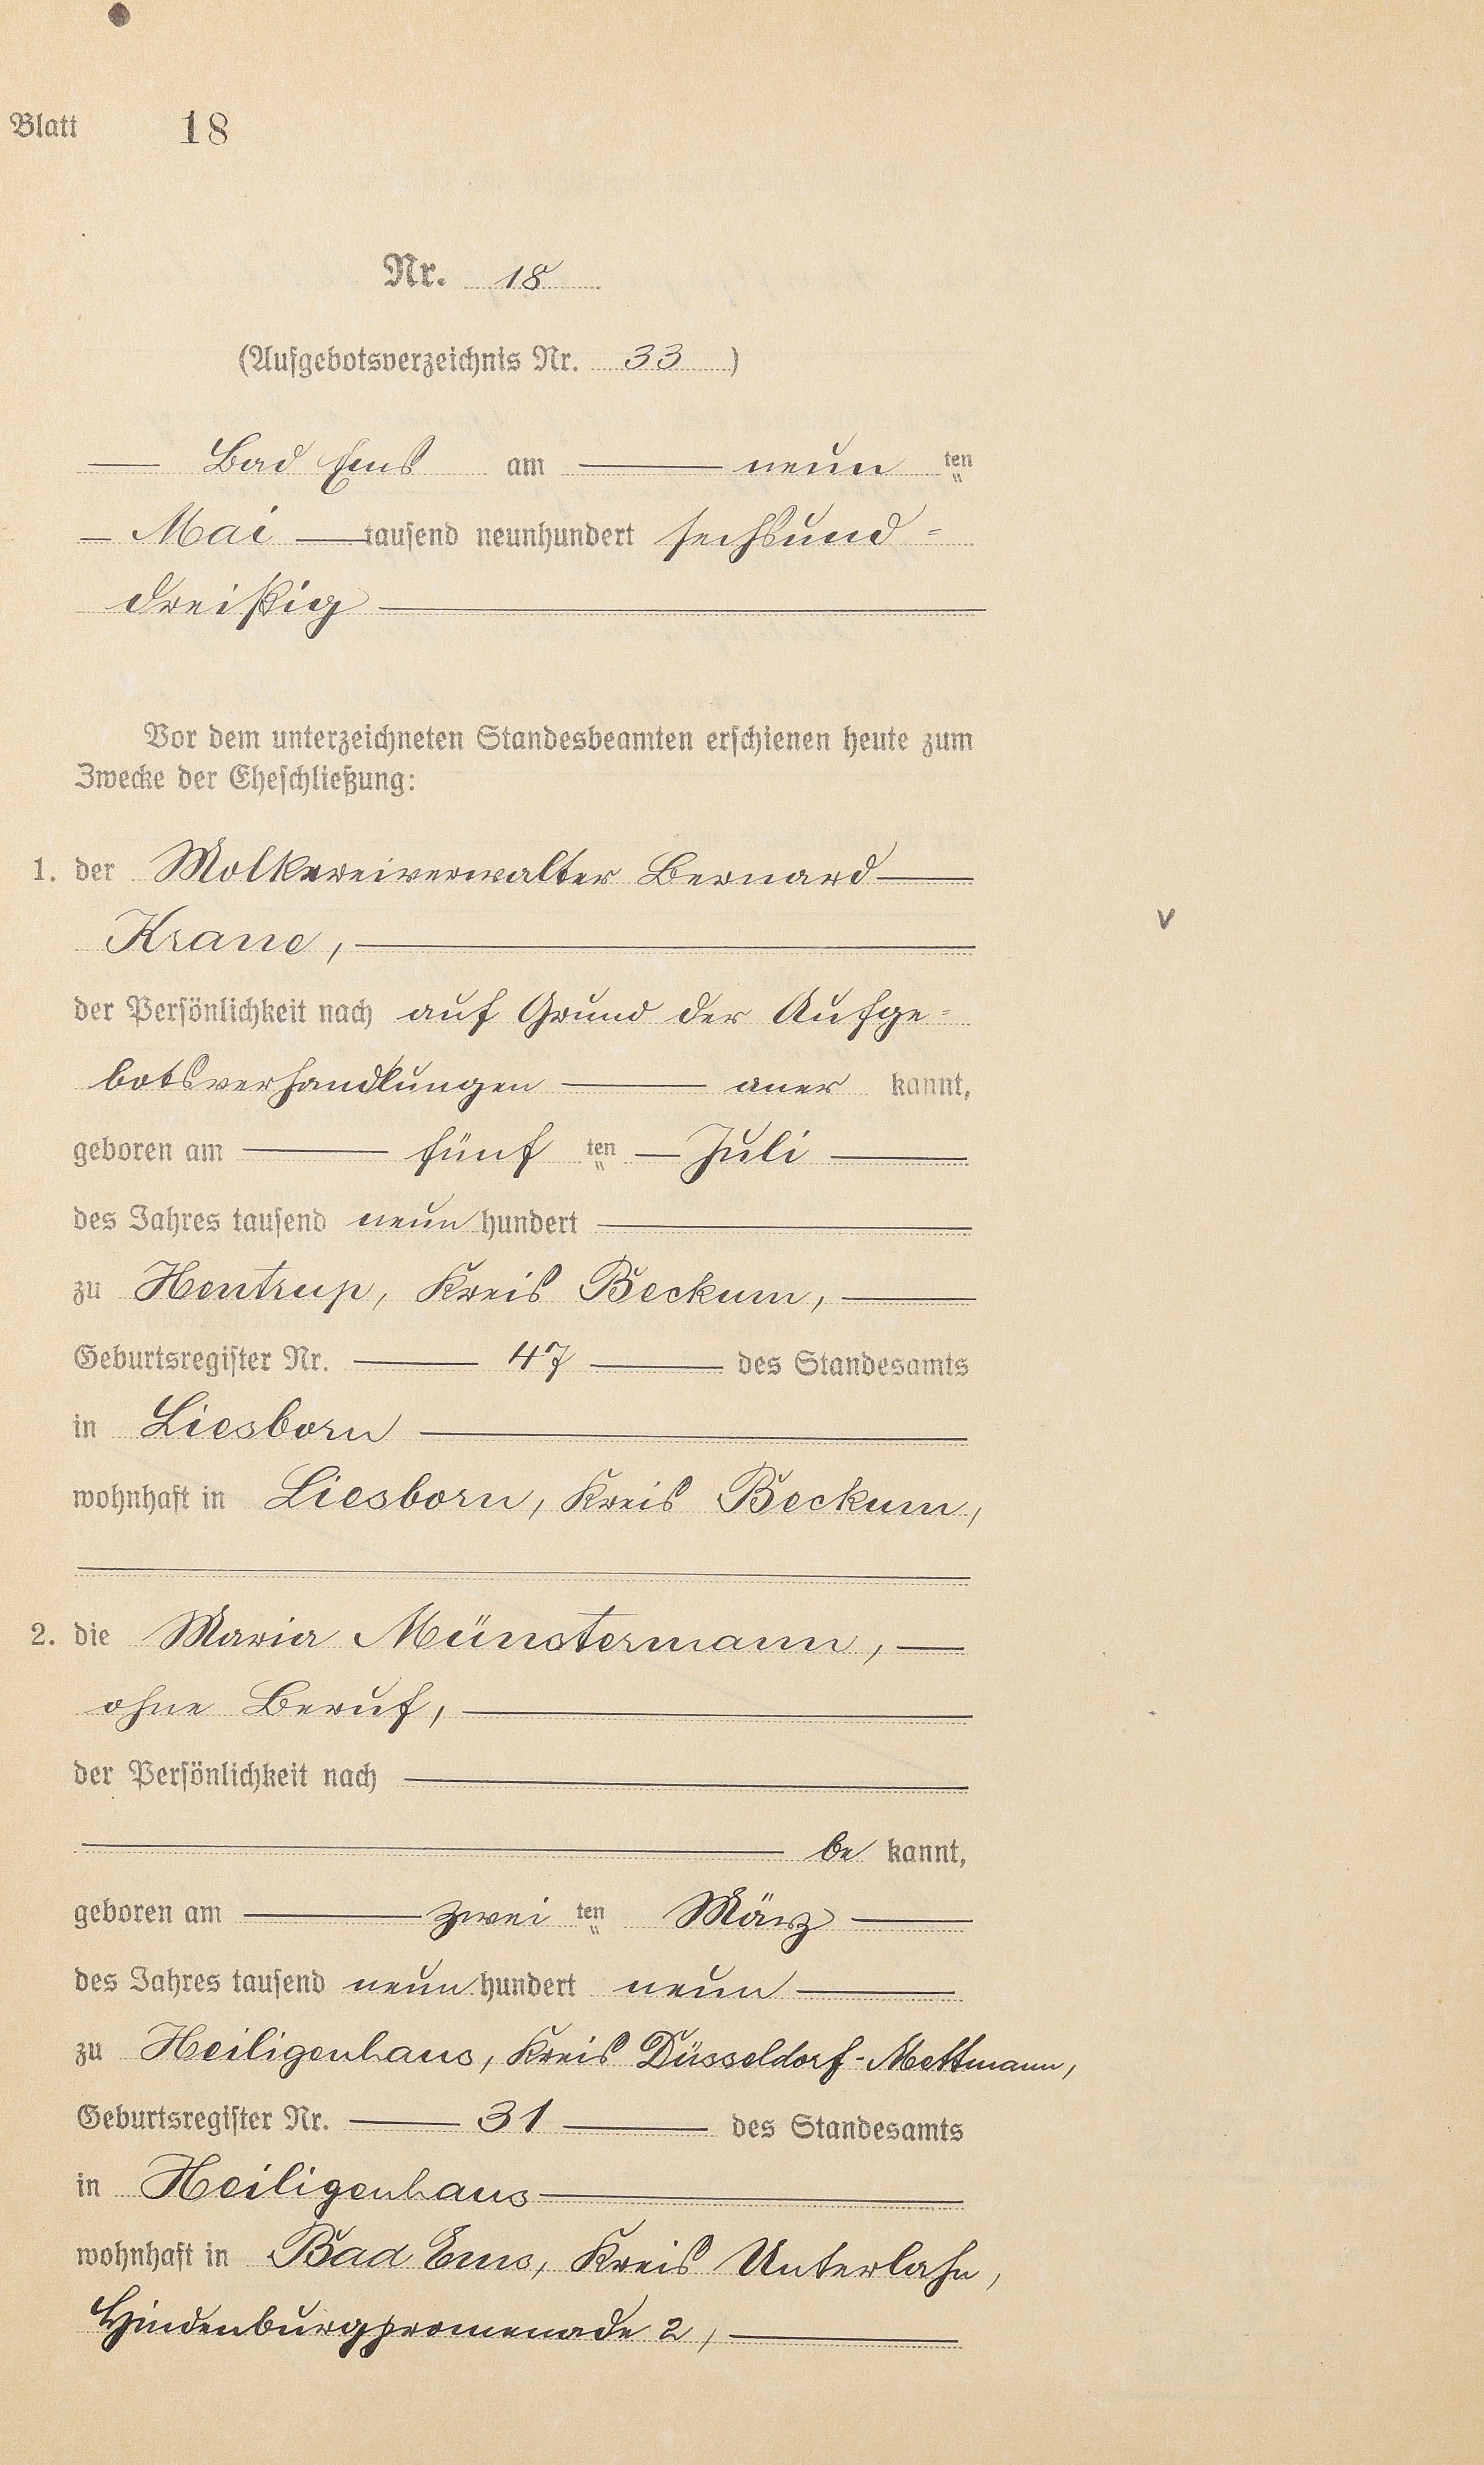 Blatt 18
Nr. 18
(Aufgebotsverzeichnis Nr. 33 )
Bad Ems am neun ten
Mai tausend neunhundert sechsund=
dreißig
Vor dem unterzeichneten Standesbeamten erschienen heute zum
Zwecke der Eheschließung:
1. der Molkereiverwalter Bernard
Krane,
der Persönlichkeit nach auf Grund der Aufge=
botsverhandlungen aner kannt,
geboren am fünf ten Juli
des Jahres tausend neun hundert
zu Hentrup, Kreis Beckum,
Geburtsregister Nr. 47 des Standesamts
in Liesborn
wohnhaft in Liesborn, Kreis Beckum,
2. die Maria Münstermann,
ohne Beruf,
der Persönlichkeit nach
be kannt,
geboren am zwei ten März
des Jahres tausend neun hundert neun
zu Heiligenhaus, Kreis Düsseldorf-Mettmann,
Geburtsregister Nr. 31 des Standesamts
in Heiligenhaus
wohnhaft in Bad Ems, Kreis Unterlahn,
Hindenburgpromenade 2,